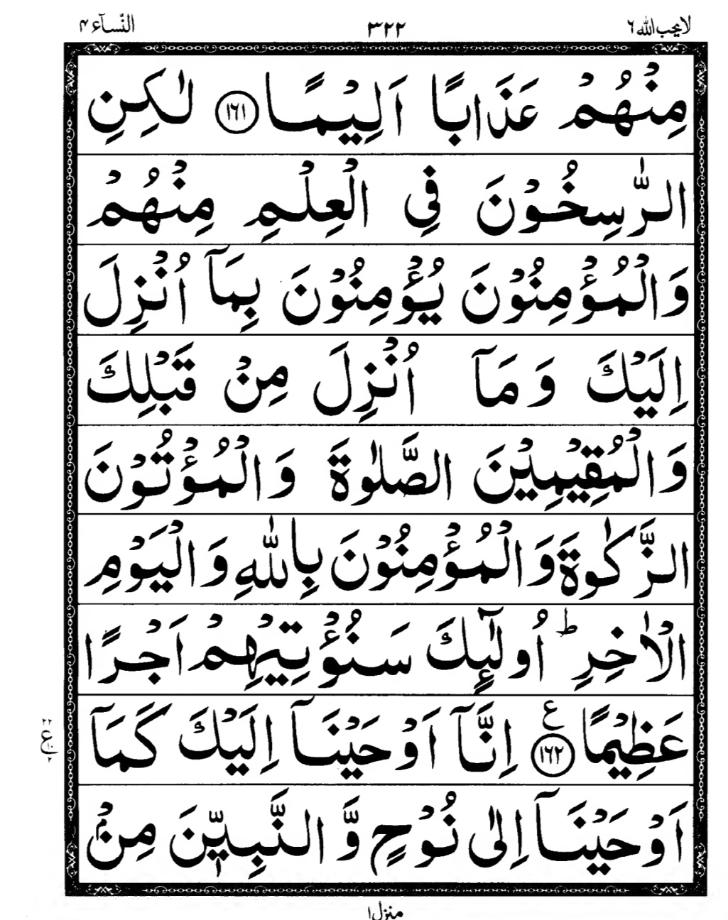 لایحب الله ۶ ۳۲۲ النسآء ۴
مِنْهُمْ عَذَابًا اَلِيْمًا ﴿۱۶۱﴾ لٰكِنِ
الرّٰسِخُوْنَ فِي الْعِلْمِ مِنْهُمْ
وَالْمُؤْمِنُوْنَ يُؤْمِنُوْنَ بِمَآ اُنْزِلَ
اِلَيْكَ وَمَآ اُنْزِلَ مِنْ قَبْلِكَ
وَالْمُقِيْمِيْنَ الصَّلٰوةَ وَالْمُؤْتُوْنَ
الزَّكٰوةَ وَالْمُؤْمِنُوْنَ بِاللّٰهِ وَالْيَوْمِ
الْاٰخِرِ ؕ اُولٰٓئِكَ سَنُؤْتِيْهِمْ اَجْرًا
عَظِيْمًا ﴿۱۶۲﴾ ع اِنَّآ اَوْحَيْنَآ اِلَيْكَ كَمَآ
اَوْحَيْنَآ اِلٰى نُوْحٍ وَّالنَّبِيّٖنَ مِنْۢ
منزل ۱